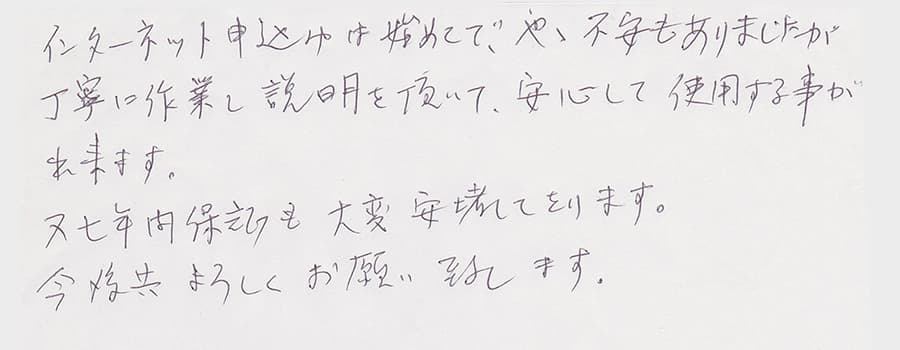 インターネット申込みは始めてで、やゝ不安もありましたが
丁寧に作業し説明を頂いて、安心して使用する事が
出来ます。
又七年間保証も大変安堵してをります。
今後共よろしくお願い致します。